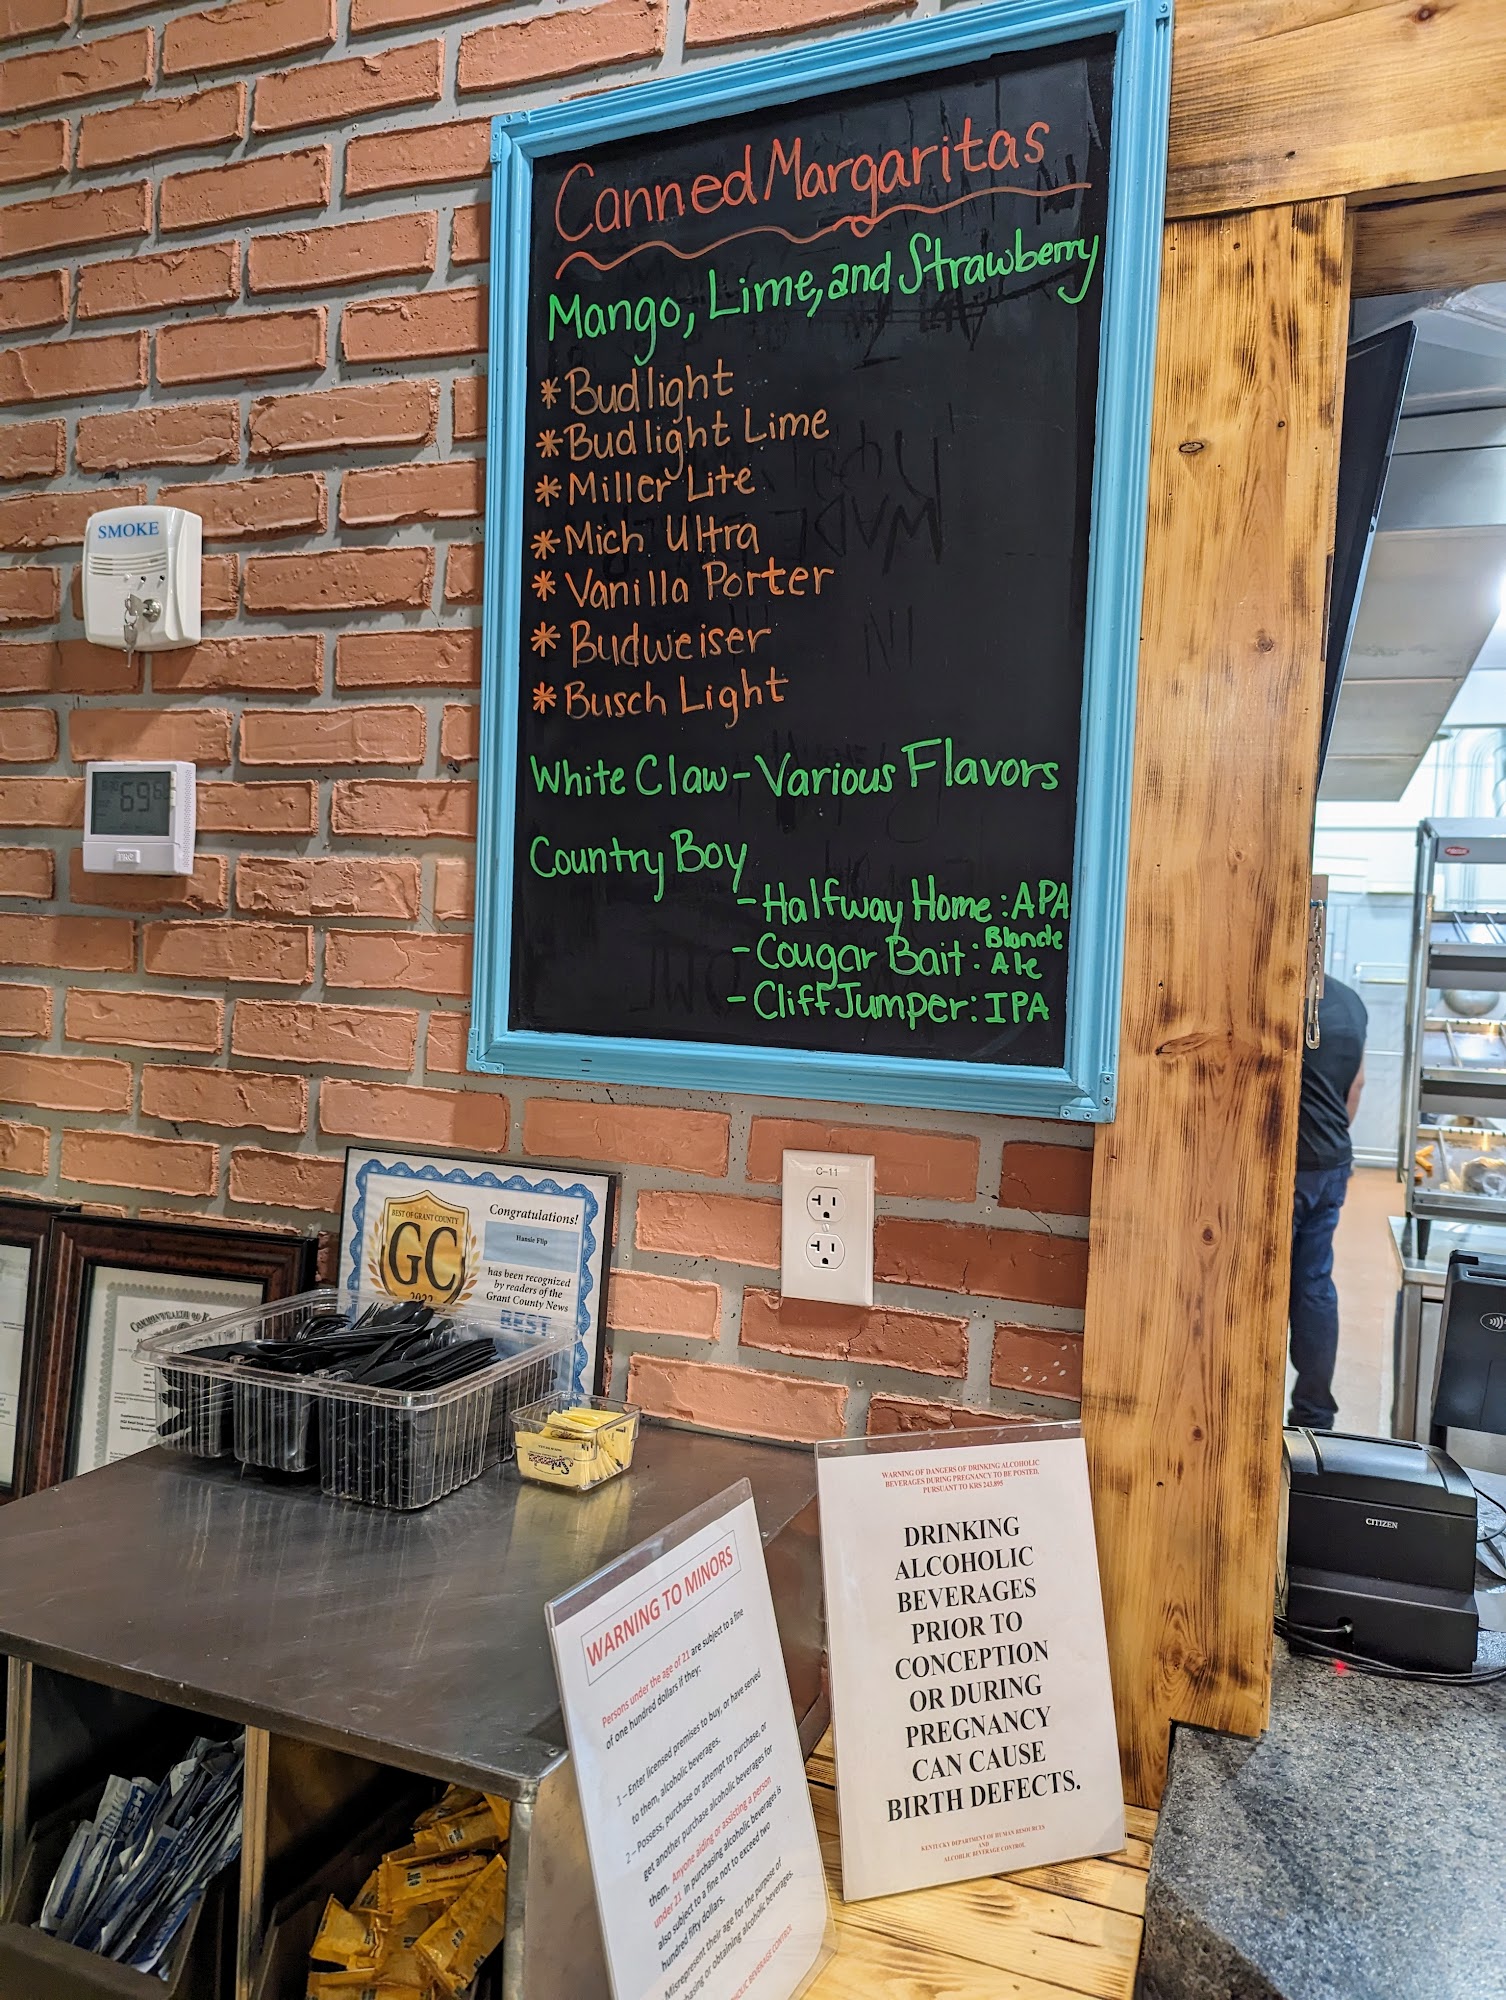 Canned Margaritas
Mango, Lime, and Strawberry
* Bud light
* Bud light Lime
* Miller Lite
* Mich Ultra
* Vanilla Porter
* Budweiser
* Busch Light
White Claw - Various Flavors
Country Boy
- Halfway Home: APA
- Cougar Bait: Blonde Ale
- Cliff Jumper: IPA
SMOKE
69
C-11
BEST OF GRANT COUNTY
GC
2022
Congratulations!
Hansie Flip
has been recognized
by readers of the
Grant County News
BEST
WARNING TO MINORS
Persons under the age of 21 are subject to a fine
of one hundred dollars if they:
1 – Enter licensed premises to buy, or have served
to them, alcoholic beverages.
2 – Possess, purchase or attempt to purchase, or
get another purchase alcoholic beverages for
them. Anyone aiding or assisting a person
under 21 in purchasing alcoholic beverages is
also subject to a fine not to exceed two
hundred fifty dollars.
Misrepresent their age for the purpose of
or obtaining alcoholic beverages.
BEVERAGE CONTROL
WARNING OF DANGERS OF DRINKING ALCOHOLIC
BEVERAGES DURING PREGNANCY TO BE POSTED.
PURSUANT TO KRS 243.895
DRINKING
ALCOHOLIC
BEVERAGES
PRIOR TO
CONCEPTION
OR DURING
PREGNANCY
CAN CAUSE
BIRTH DEFECTS.
KENTUCKY DEPARTMENT OF HUMAN RESOURCES
AND
ALCOHLIC BEVERAGE CONTROL
CITIZEN